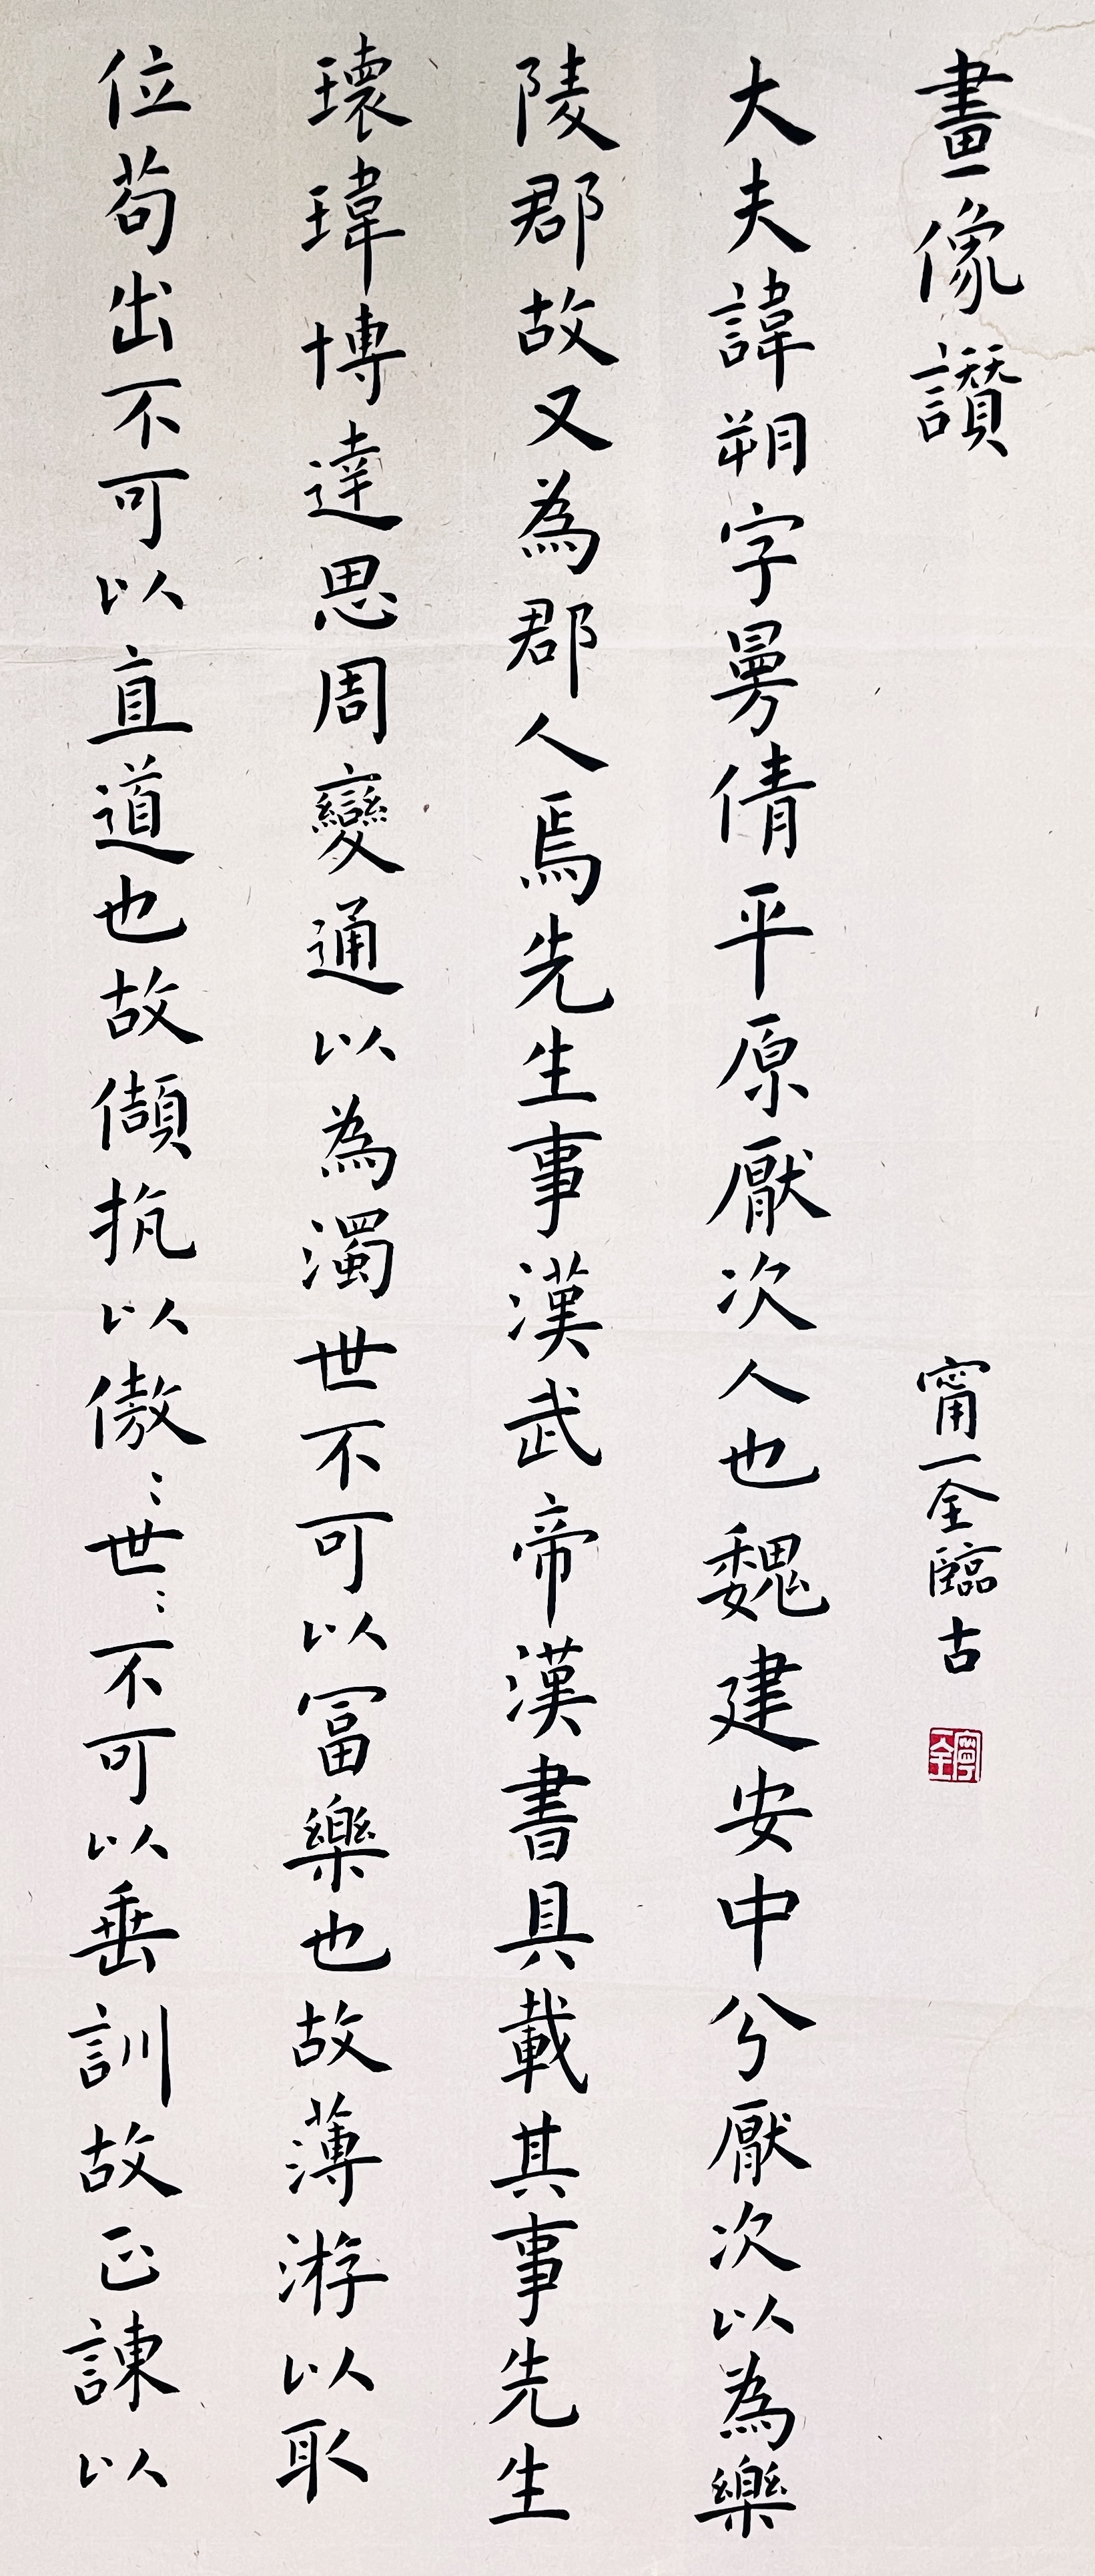 畫像讚
甯一全臨古
大夫諱朔字曼倩平原厭次人也魏建安中分厭次以為樂
陵郡故又為郡人焉先生事漢武帝漢書具載其事先生
瓌瑋博達思周變通以為濁世不可以冨樂也故薄游以取
位苟出不可以直道也故頡抗以傲〻世〻不可以垂訓故正諫以